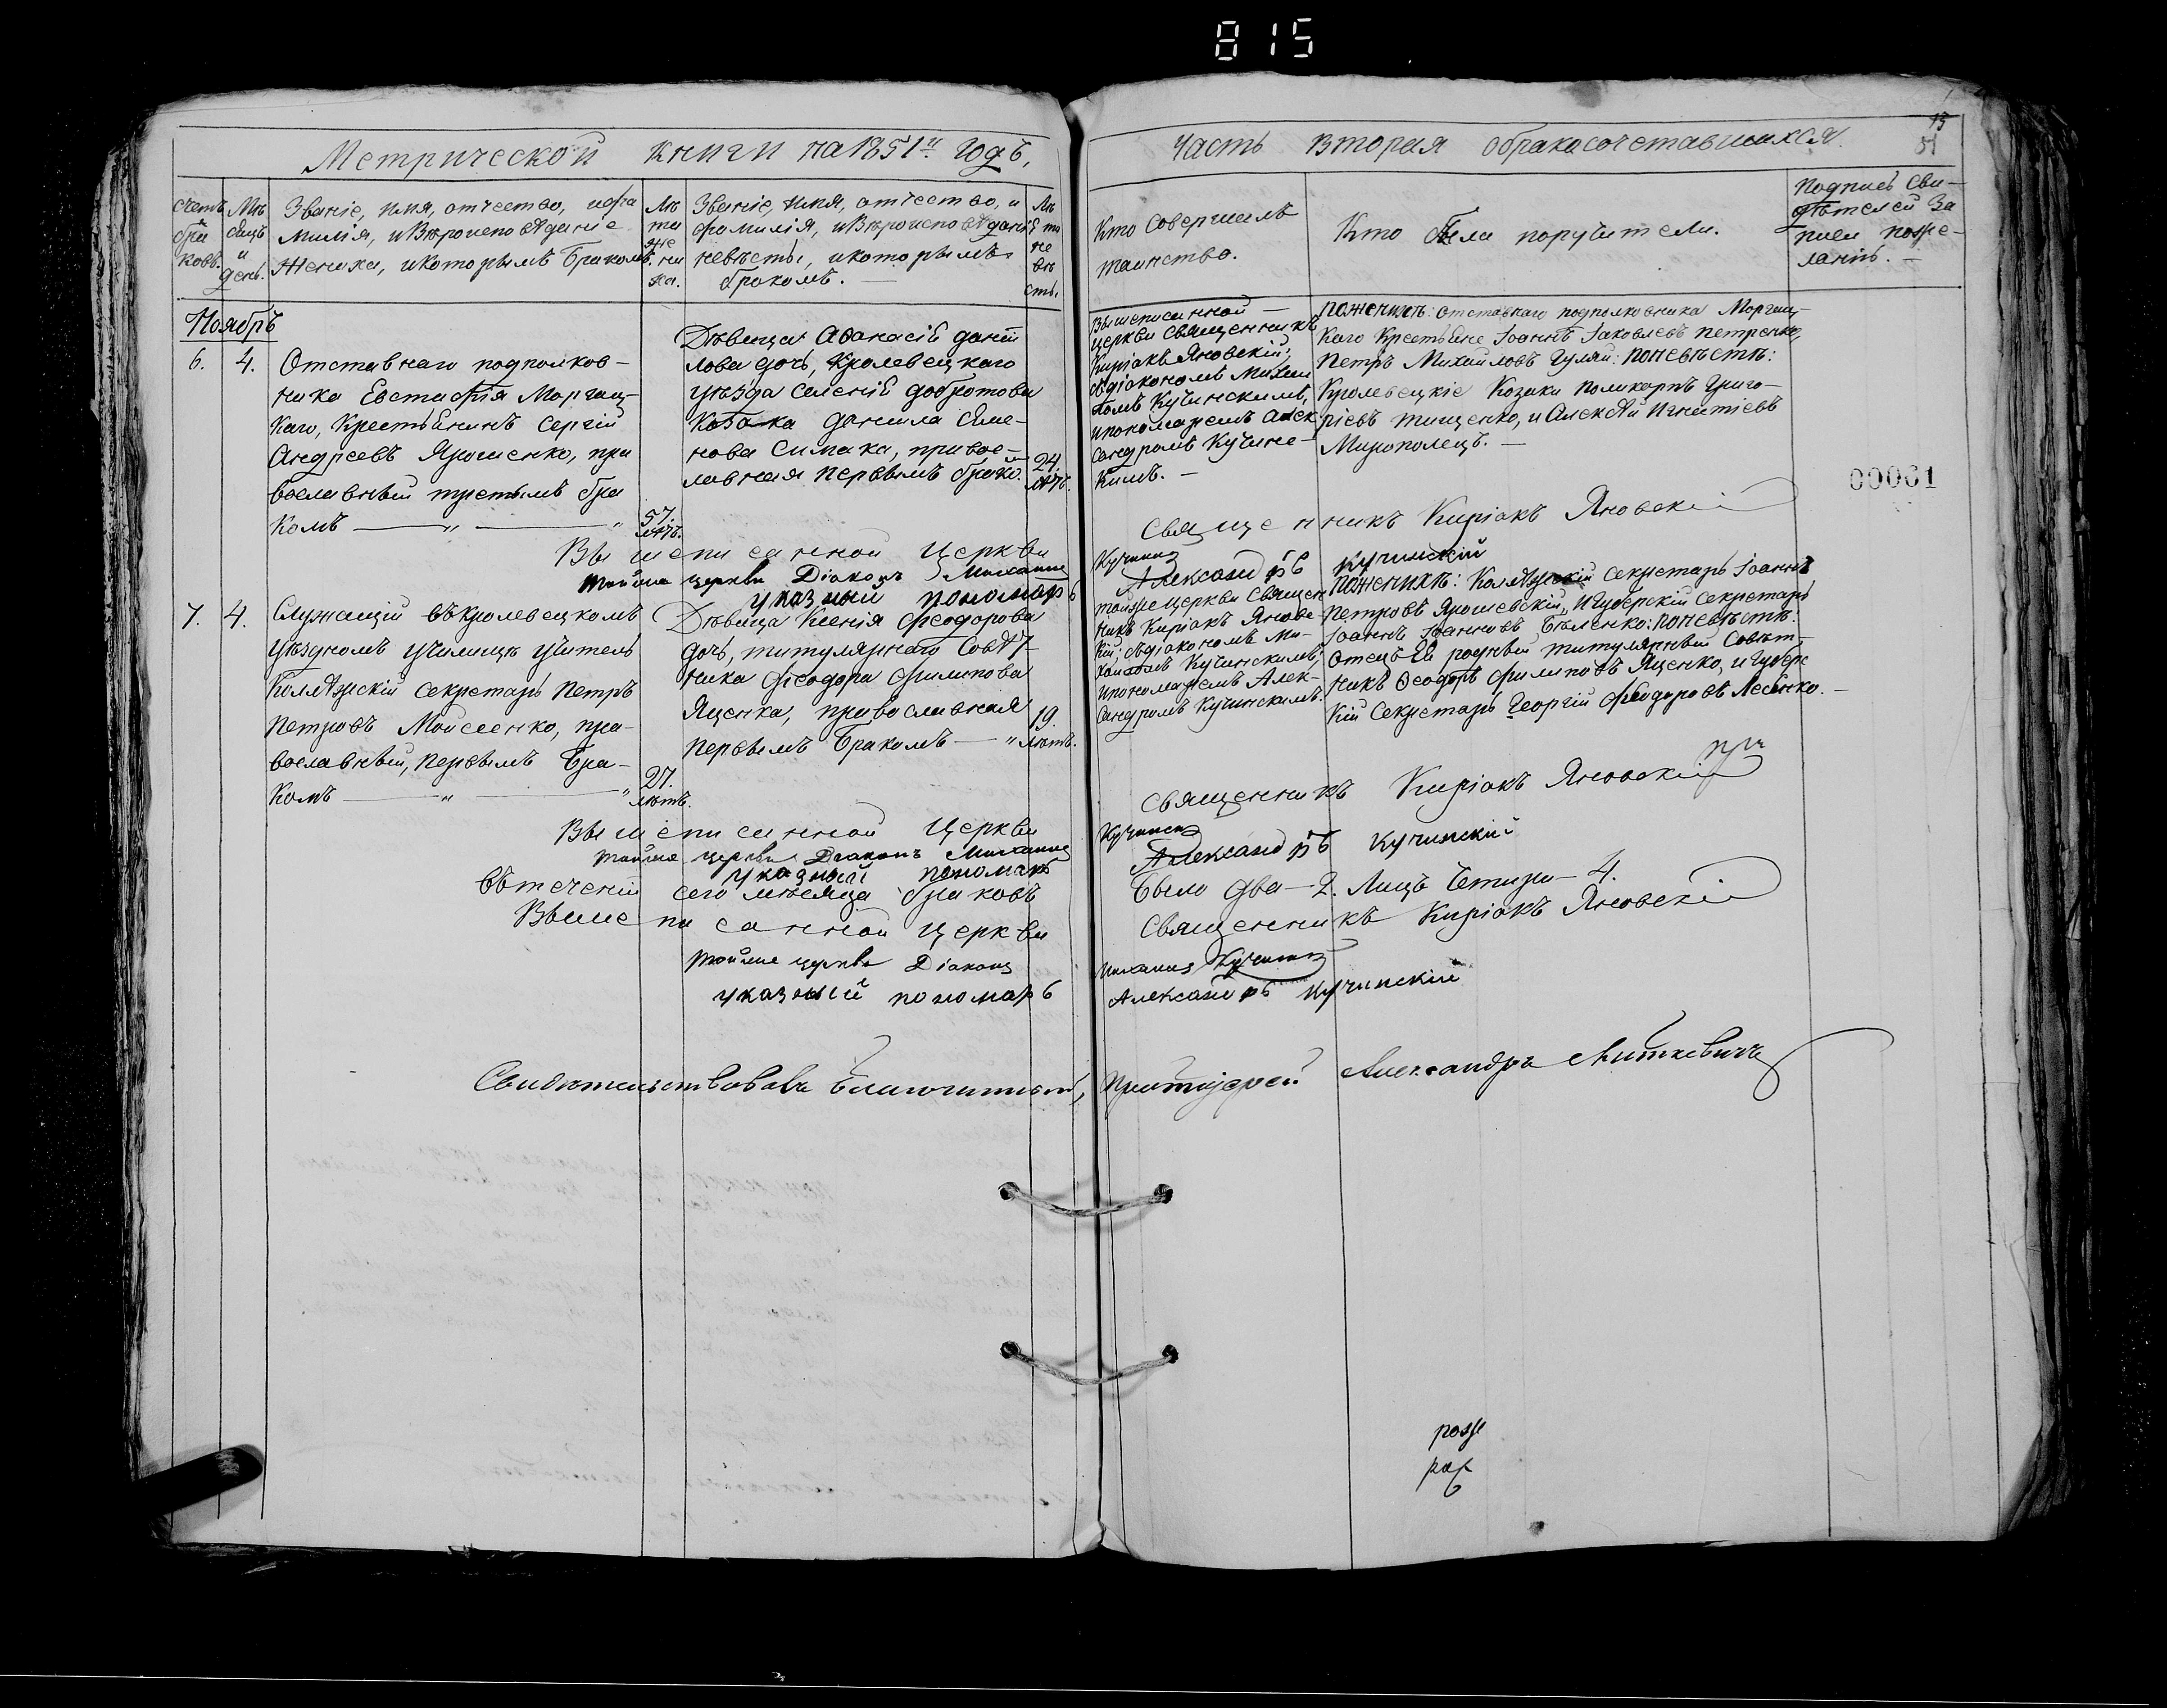 815
Метрической книги на 1851й годъ,
Часть вторая обракосочетавшихся.
13
51
счетъ браковъ.
Мѣсяцъ и день.
Званіе, имя, отчество, ифа
милія, иВѣроисповѣданіе
Жениха, икоторымъ бракомъ.
Лѣта жениха.
Званіе, имя, отчество, и
фамилія, иВѣроисповѣданіе
невѣсты, икоторымъ
бракомъ. —
Лѣта невѣсты.
Кто совершалъ
таинство.
Кто были поручители.
Подпись сви-
дѣтелей За
писи поже-
ланію. —
Ноябръ
6. 4.
Отставнаго подполков-
ника Евстафія Маргащ-
каго, Крестьянинъ Сергій
Андреевъ Ярошенко, пра
вославный третьимъ бра
комъ — " — "
57. лѣтъ.
Дѣвица Афанасія Даніи
лова дочь, Кролевецкаго
уѣзда селенія Добротова
Козака Данила Семе-
нова Симака, правос-
лавная первымъ брако.
24. лѣтъ.
Вышеписанной —
церкви Священникъ
Киріакъ Яновскій;
съдіакономъ Михаи
ломъ Кучинскимъ,
ипономаремъ Алек
сандромъ Кучинс-
кимъ. —
Поженихѣ: отставнаго подполковника Маргащ-
каго Крестьяне Іоаннъ Іаковлевъ Петренко,
Петръ Михайловъ Гуляй: поневѣстѣ:
Кролевецкіе Козаки Поликарпъ Григо-
ріевъ Тищенко, и Алексѣй Игнатіевъ
Мирополецъ. —
00061
Вышеписанной Церкви Священникъ Киріакъ Яновскій
тойже церкви Діаконъ Михаилъ Кучинскій
указный пономарь Александръ Кучинскій
7. 4.
Служащій въКролевецкомъ
уѣздномъ училищѣ учитель
Коллѣжскій Секретарь Петръ
Петровъ Мойсеенко, пра-
вославный, первымъ бра-
комъ — " — "
27. лѣтъ.
Дѣвица Ксенія Феодорова
дочь, титулярнаго Совѣт-
ника Феодора Филипова
Яценка, православная
первымъ бракомъ — "
19. лѣтъ.
тойже церкви Священ
никъ Киріакъ Яновс-
кій; съдіакономъ Ми-
хаиломъ Кучинскимъ;
ипономаремъ Алек-
сандромъ Кучинскимъ.
Поженихѣ: Коллѣжскій Секретарь Іоаннъ
Петровъ Ярошевскій, иГуберскій Секретарь
Іоаннъ Іоанновъ Бѣленко: поневѣстѣ:
Отецъ Ея родный титулярный Совѣт-
никъ Феодоръ Филиповъ Яценко, иГуберс
кій Секретарь Георгій Феодоровъ Лесенко. —
Вышеписанной Церкви Священникъ Киріакъ Яновскій
тойже церкви Діаконъ Михаилъ Кучинскій
указный пономарь Александръ Кучинскій
Втеченіи сего мѣсяца браковъ было два — 2. Лицъ четыри — 4.
Вышеписанной Церкви Священникъ Киріакъ Яновскій
тойже церкви Діаконъ Михаилъ Кучинскій
указный пономарь Александръ Кучинскій
Свидѣтельствовалъ Благочинный, Протоіерей Александръ Миткевичъ